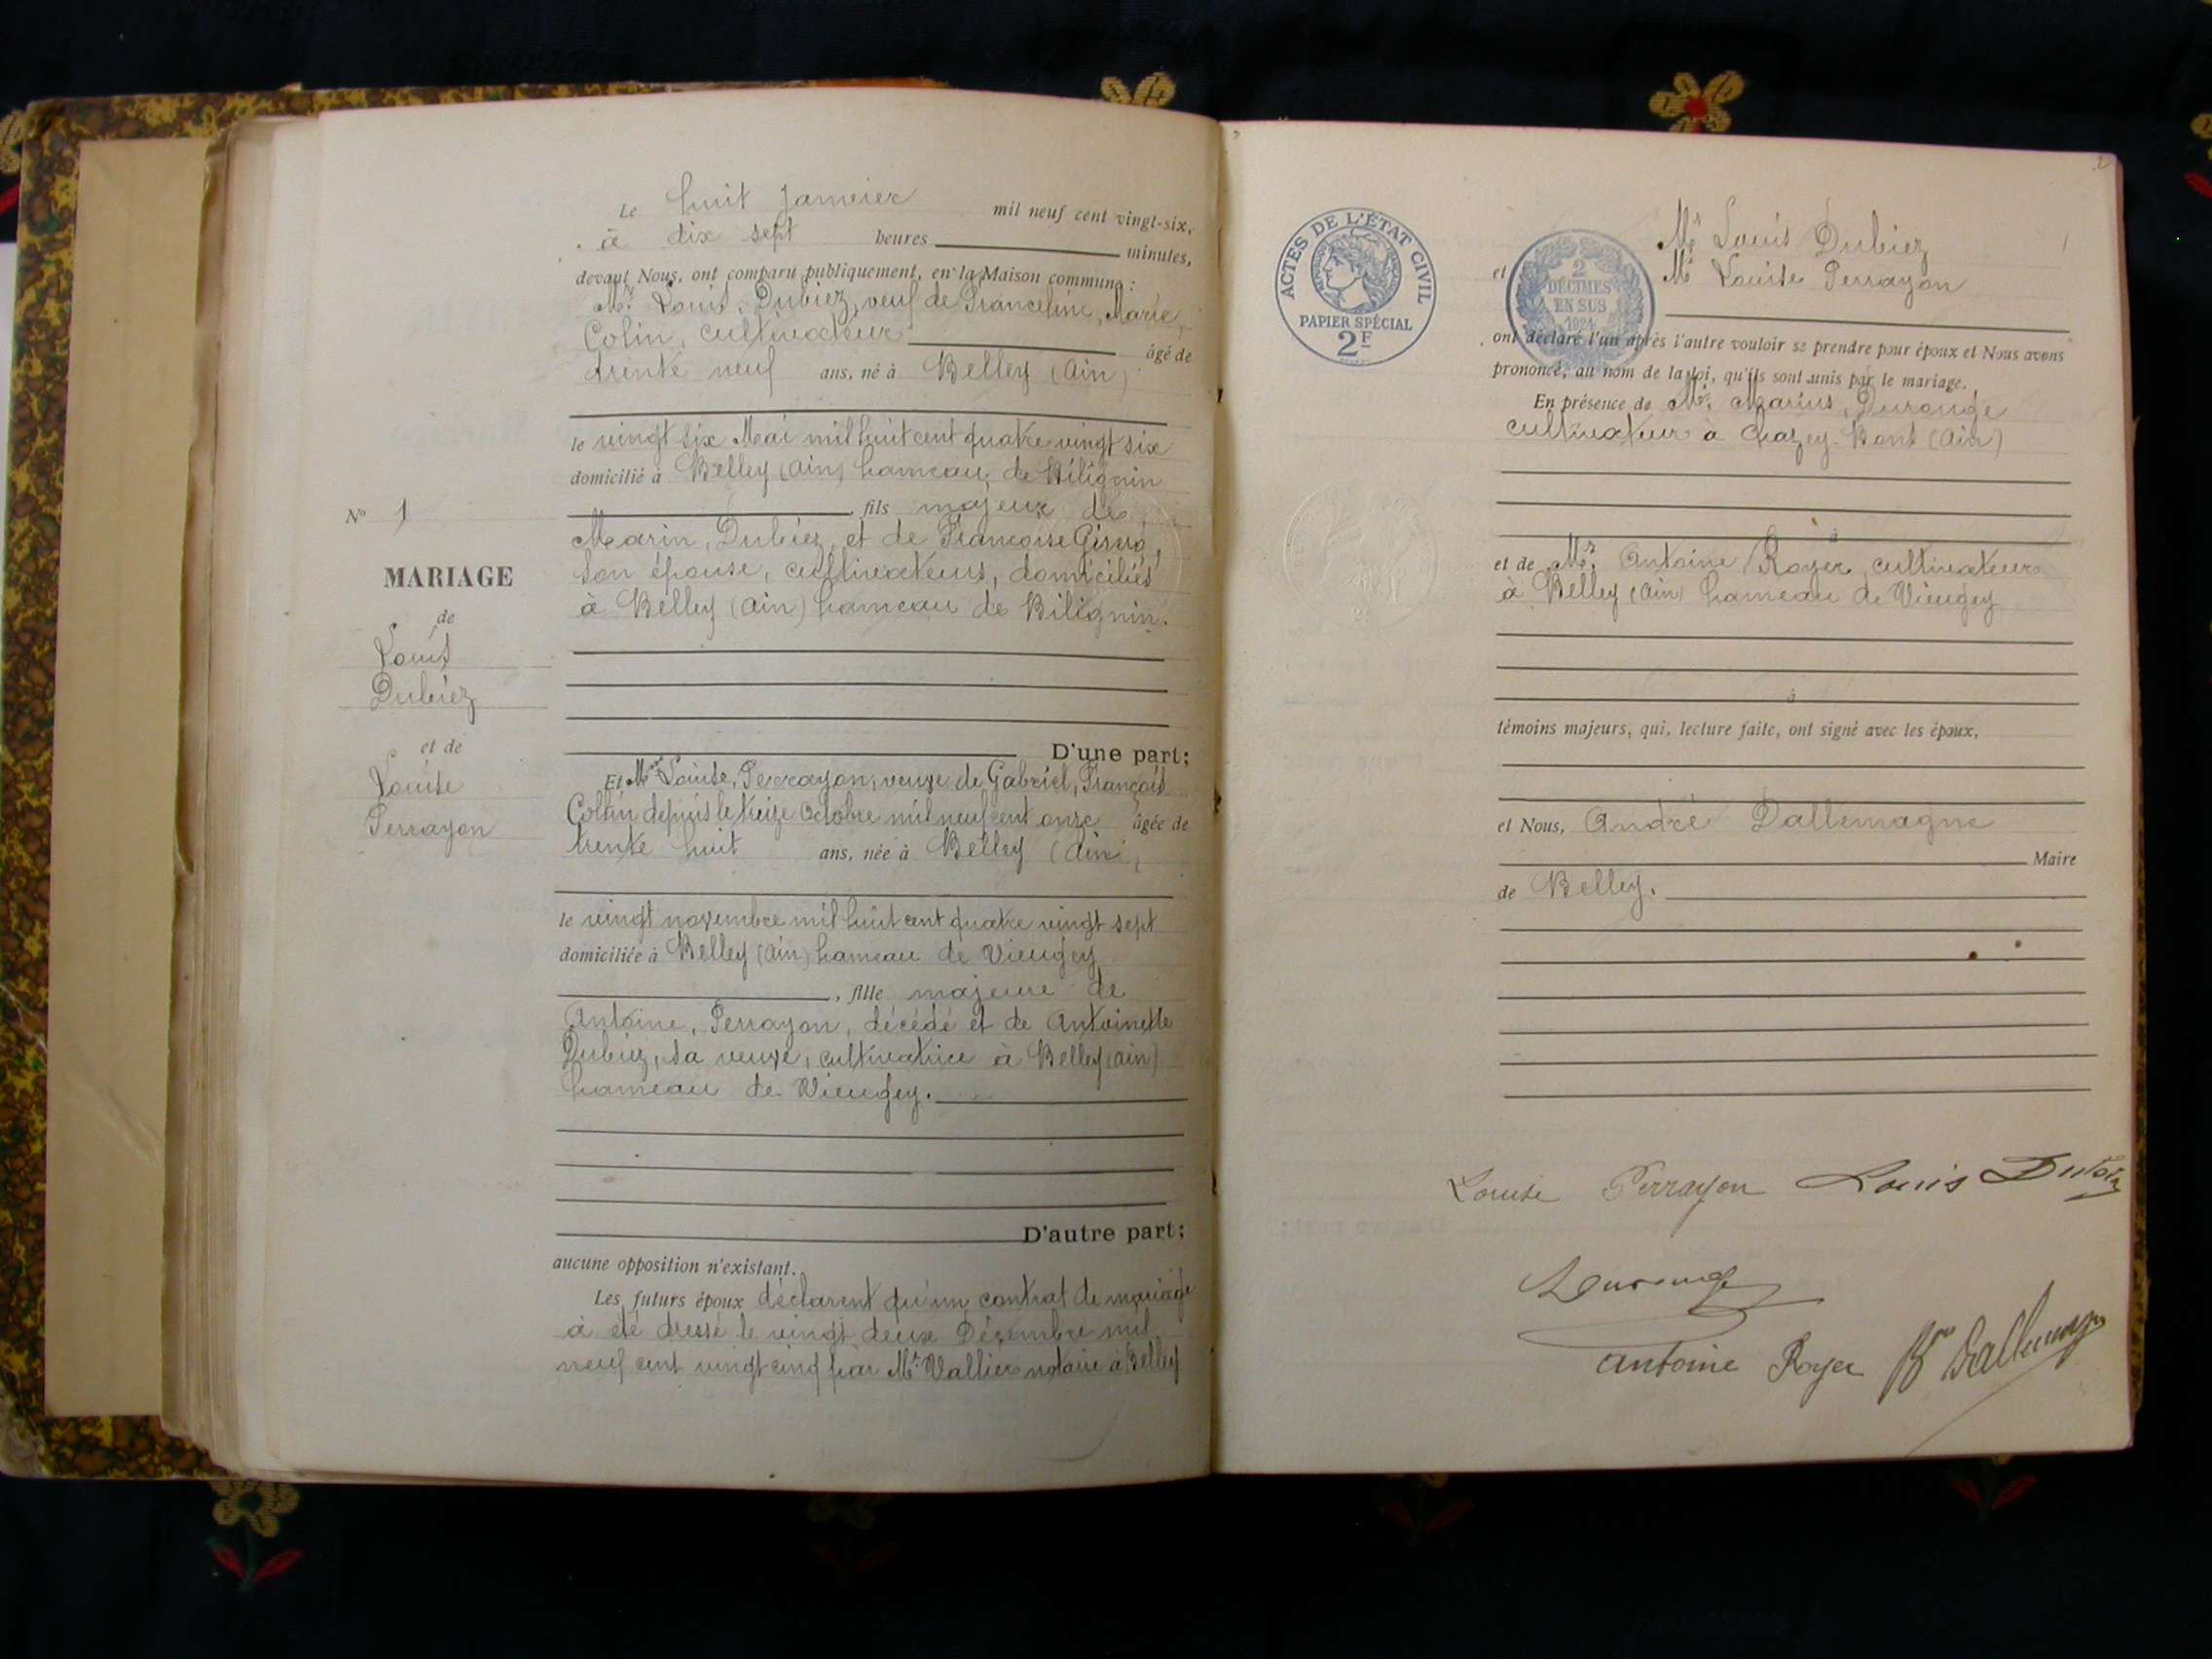 Le huit Janvier mil neuf cent vingt-six,
à dix sept heures minutes,
devant Nous, ont comparu publiquement, en la Maison commune :
Mr. Louis, Dubiez, veuf de Franceline, Marie,
Colin, cultivateur âgé de
trente neuf ans, né à Belley (Ain)
le vingt six Mai mil huit cent quatre vingt six
domicilié à Belley (Ain) hameau de Bilignin
fils majeur de
Marin, Dubiez, et de Françoise
son épouse, cultivateurs, domiciliés
à Belley (Ain) hameau de Bilignin.
No 1
MARIAGE
de
Louis
Dubiez
et de
Louise
Perrayon
D'une part;
Et Mme Louise, Perrayon, veuve de Gabriel, François
Collin depuis le treize Octobre mil neuf cent onze âgée de
trente huit ans, née à Belley (Ain),
le vingt novembre mil huit cent quatre vingt sept
domiciliée à Belley (Ain) hameau de Vieugey
, fille majeure de
Antoine, Perrayon, décédé et de Antoinette
Dubiez, sa veuve, cultivatrice à Belley (Ain)
hameau de Vieugey.
D'autre part;
aucune opposition n'existant.
Les futurs époux déclarent qu'un contrat de mariage
à été dressé le vingt deux Décembre mil
neuf cent vingt cinq par Me Vallier notaire à Belley
2
ACTES DE L'ÉTAT CIVIL
PAPIER SPÉCIAL
2F
2
DÉCIMES
EN SUS
1924
Mr Louis Dubiez
et Me Louise Perrayon
ont déclaré l'un après l'autre vouloir se prendre pour époux et Nous avons
prononcé, au nom de la loi, qu'ils sont unis par le mariage.
En présence de Mr. Marius, Durouge
cultivateur à Chazey-Bons (Ain)
à
et de Mr. Antoine Royer, cultivateur
à Belley (Ain) hameau de Vieugey
à
témoins majeurs, qui, lecture faite, ont signé avec les époux,
et Nous, André Dallemagne
Maire
de Belley.
Louise Perrayon Louis Dubiez
Durouge
Antoine Royer Bon Dallemagne